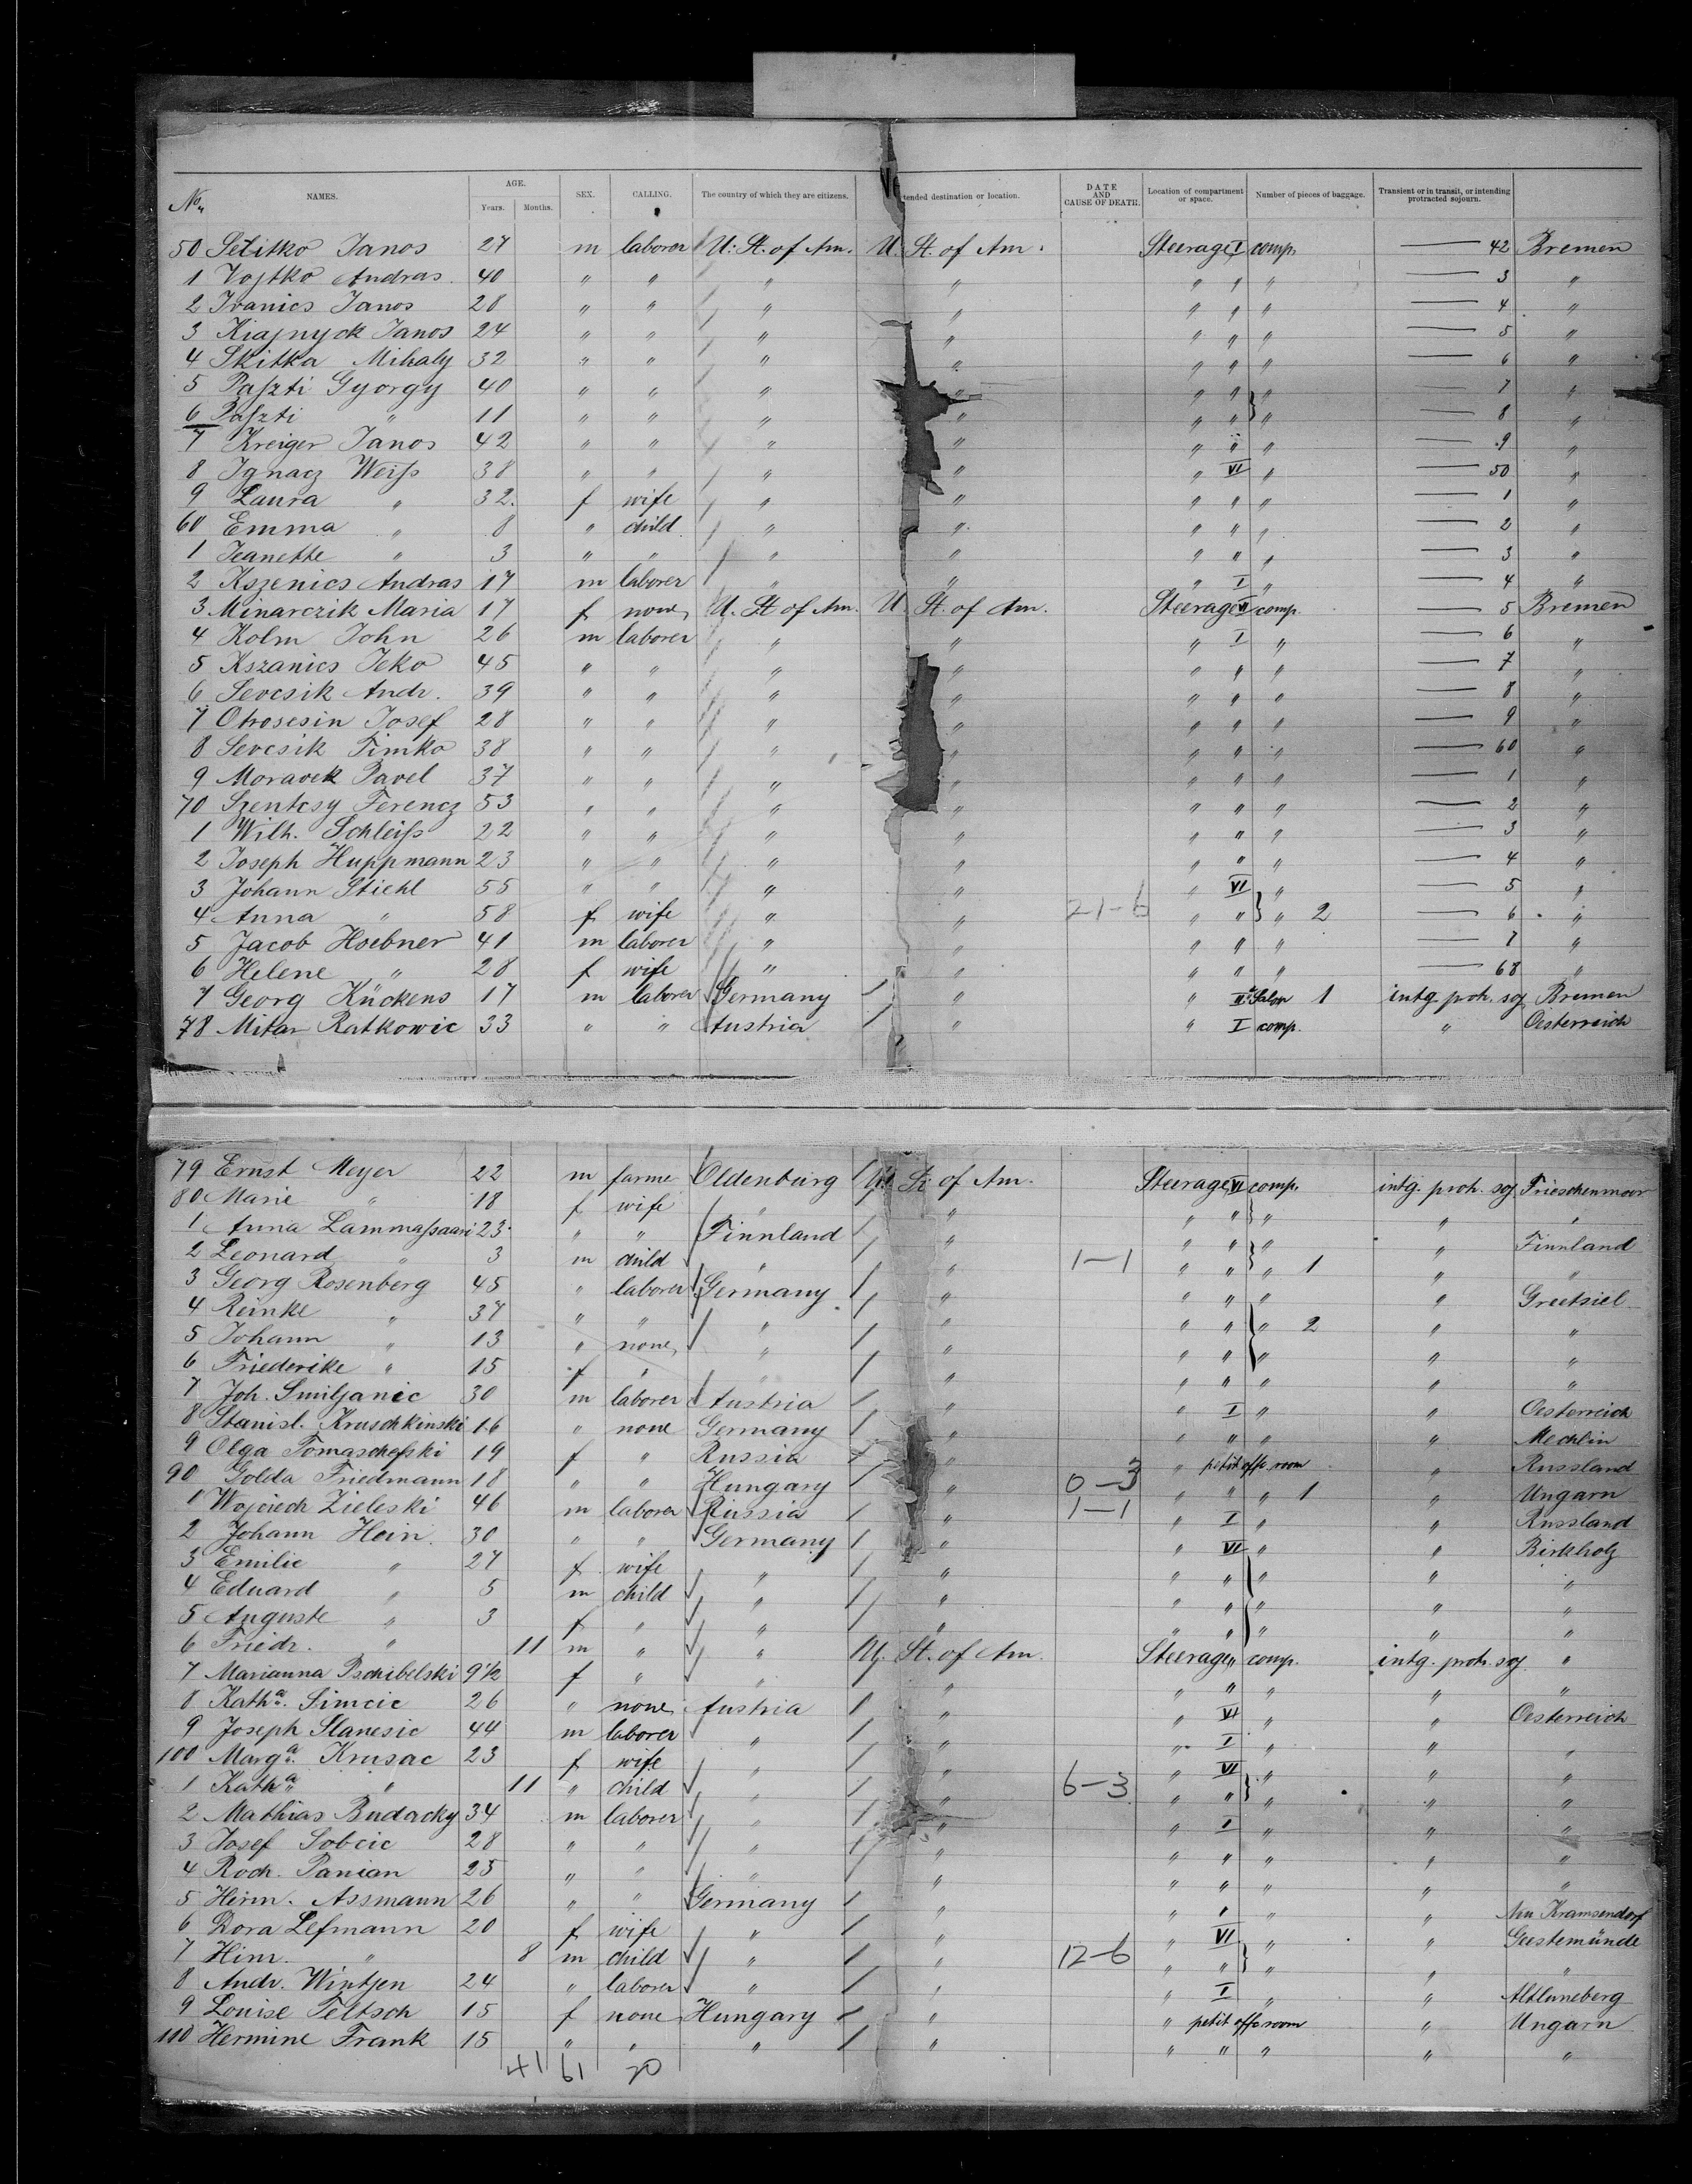 No. NAMES. AGE. Years. Months. SEX. CALLING. The country of which they are citizens. tended destination or location. DATE AND CAUSE OF DEATH. Location of compartment or space. Number of pieces of baggage. Transient or in transit, or intending protracted sojourn.
50 Setitko Janos 27 m laborer U. St. of Am. U. St. of Am. Steerage I comp. — 42 Bremen
1 Vojtko Andras 40 " " " " " " " — 3 "
2 Ivanics Janos 28 " " " " " " " — 4 "
3 Kiajnyck Janos 24 " " " " " " " — 5 "
4 Skitka Mihaly 32 " " " " " " " — 6 "
5 Paszti Gyorgy 40 " " " " " " " — 7 "
6 Paszti " 11 " " " " " " " — 8 "
7 Kreiger Janos 42 " " " " " " " — 9 "
8 Ignacz Weiss 38 " " " " " VI " — 50 "
9 Laura " 32 f wife " " " " " — 1 "
60 Emma " 8 " child " " " " " — 2 "
1 Jeanette " 3 " " " " " " " — 3 "
2 Kszenics Andras 17 m laborer " " " I " — 4 "
3 Minarczik Maria 17 f none U. St. of Am. U. St. of Am. Steerage VI comp. — 5 Bremen
4 Kolm John 26 m laborer " " " I " — 6 "
5 Kszanics Jeko 45 " " " " " " " — 7 "
6 Sevcsik Andr. 39 " " " " " " " — 8 "
7 Otrosesin Josef 28 " " " " " " " — 9 "
8 Sevcsik Timko 38 " " " " " " " — 60 "
9 Moravek Pavel 37 " " " " " " " — 1 "
70 Szentesy Ferencz 53 " " " " " " " — 2 "
1 Wilh. Schleiss 22 " " " " " " " — 3 "
2 Joseph Huppmann 23 " " " " " " " — 4 "
3 Johann Stiehl 55 " " " " " VI " — 5 "
4 Anna " 58 f wife " " 21-6 " " " 2 — 6 "
5 Jacob Hoebner 41 m laborer " " " " " — 7 "
6 Helene " 28 f wife " " " " " — 68 "
7 Georg Kückens 17 m laborer Germany " " II. Salon 1 intg. protr. soj. Bremen
78 Mitar Ratkowic 33 " " Austria " " I comp. " Oesterreich
79 Ernst Meyer 22 m farme Oldenburg U. St. of Am. Steerage VI comp. intg. protr. soj. Frieschenmoor
80 Marie " 18 f wife " " " " " " "
1 Anna Lammassaari 23 " " Finnland " " " " " Finnland
2 Leonard " 3 m child " " 1-1 " " " 1 " "
3 Georg Rosenberg 45 " laborer Germany " " " " " Greetsiel
4 Reinke " 37 " " " " " " " 2 " "
5 Johann " 13 " none " " " " " " "
6 Friederike " 15 f " " " " " " " "
7 Joh. Smiljanic 30 m laborer Austria " " I " " Oesterreich
8 Stanisl. Kruschkinski 16 " none Germany " " " " " Mechlin
9 Olga Tomaschefski 19 f " Russia " " petit offs room " Russland
90 Golda Friedmann 18 " " Hungary " 0-3 " " " 1 " Ungarn
1 Wojciech Zieleski 46 m laborer Russia " 1-1 " I " " Russland
2 Johann Hein 30 " " Germany " " VI " " Birkholz
3 Emilie " 27 f wife " " " " " " "
4 Eduard " 5 m child " " " " " " "
5 Auguste " 3 f " " " " " " " "
6 Friedr. " 11 m " " U. St. of Am. Steerage " comp. intg. protr. soj. "
7 Marianna Pschibelski 9½ f " " " " " " " "
8 Katha. Simcic 26 " none Austria " " VI " " Oesterreich
9 Joseph Slanesic 44 m laborer " " " I " " "
100 Marga. Krusac 23 f wife " " " VI " " "
1 Katha " 11 " child " " 6-3 " " " " "
2 Mathias Budacky 34 m laborer " " " I " " "
3 Josef Sobcic 28 " " " " " " " " "
4 Roch. Panian 25 " " " " " " " " "
5 Heinr. Assmann 26 " " Germany " " " " " Neu Kramsendorf
6 Dora Lefmann 20 f wife " " " VI " " Geestemünde
7 Hinr. " 8 m child " " 12-6 " " " " "
8 Andr. Wintjen 24 " laborer " " " I " " Altluneberg
9 Louise Feltsch 15 f none Hungary " " petit offs room " Ungarn
110 Hermine Frank 15 " " " " " " " " "
41 61 20